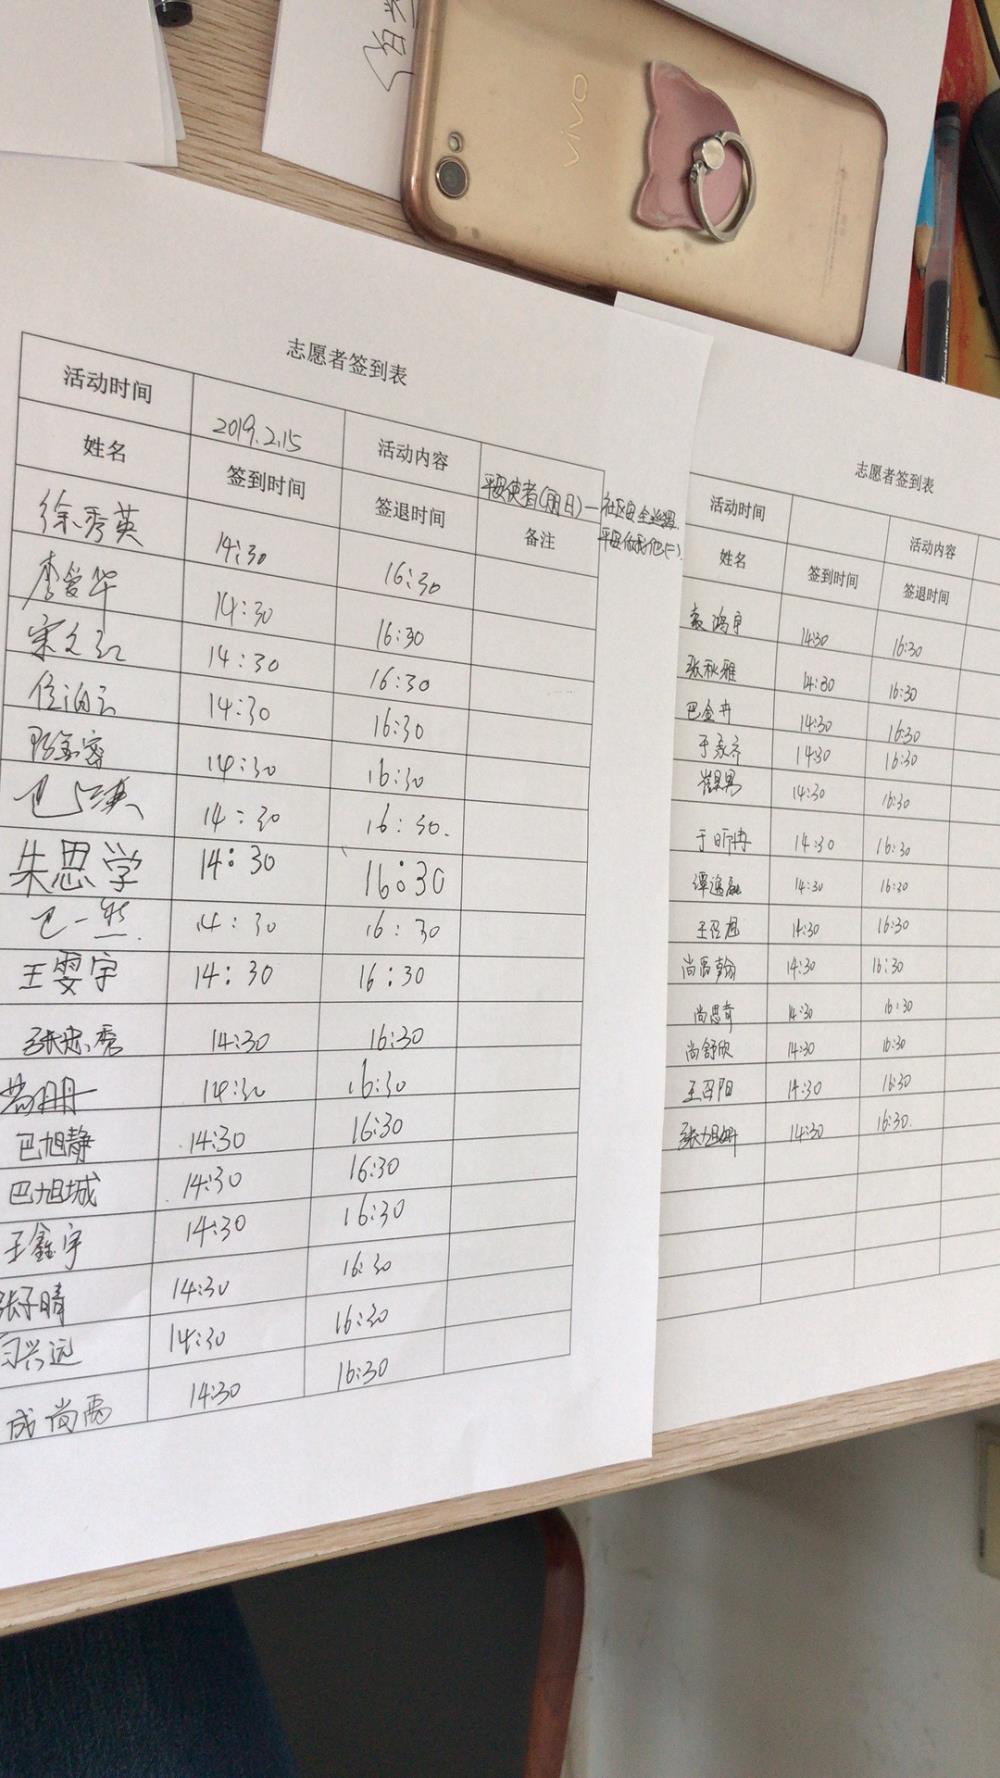 vivo
志愿者签到表
活动时间 2019.2.15 活动内容 平安使者(朋日)—社区安全巡逻
平安你我他(二)
姓名 签到时间 签退时间 备注
徐秀英 14:30 16:30
李爱华 14:30 16:30
宋文红 14:30 16:30
任泊云 14:30 16:30
14:30 16:30
14:30 16:30.
朱思学 14:30 16:30
巴一然 14:30 16:30
王雯宇 14:30 16:30
张忠秀 14:30 16:30
尚册 14:30 16:30
巴旭静 14:30 16:30
巴旭城 14:30 16:30
王鑫宇 14:30 16:30
张子晴 14:30 16:30
闫兴远 14:30 16:30
成尚禹 14:30 16:30
志愿者签到表
活动时间 活动内容
姓名 签到时间 签退时间
袁鸿宇 14:30 16:30
张秋雅 14:30 16:30
巴金冉 14:30 16:30
于永齐 14:30 16:30
崔昊男 14:30 16:30
于昕冉 14:30 16:30
谭鸿 14:30 16:30
14:30 16:30
尚禹翰 14:30 16:30
尚思奇 14:30 16:30
尚舒欣 14:30 16:30
王召阳 14:30 16:30
张旭姗 14:30 16:30.